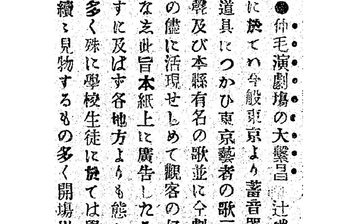 ●仲毛演劇塲の大繋昌
に於てハ今般東京より蓄音
道具につかひ東京藝者の歌
聲及び本縣有名の歌並に今劇
の儘に活現せしめて觀客の
な去此旨本紙上に廣告した
すに及ばず各地方よりも態
多く殊に學校生徒に於ては
續々見物するもの多く開塲